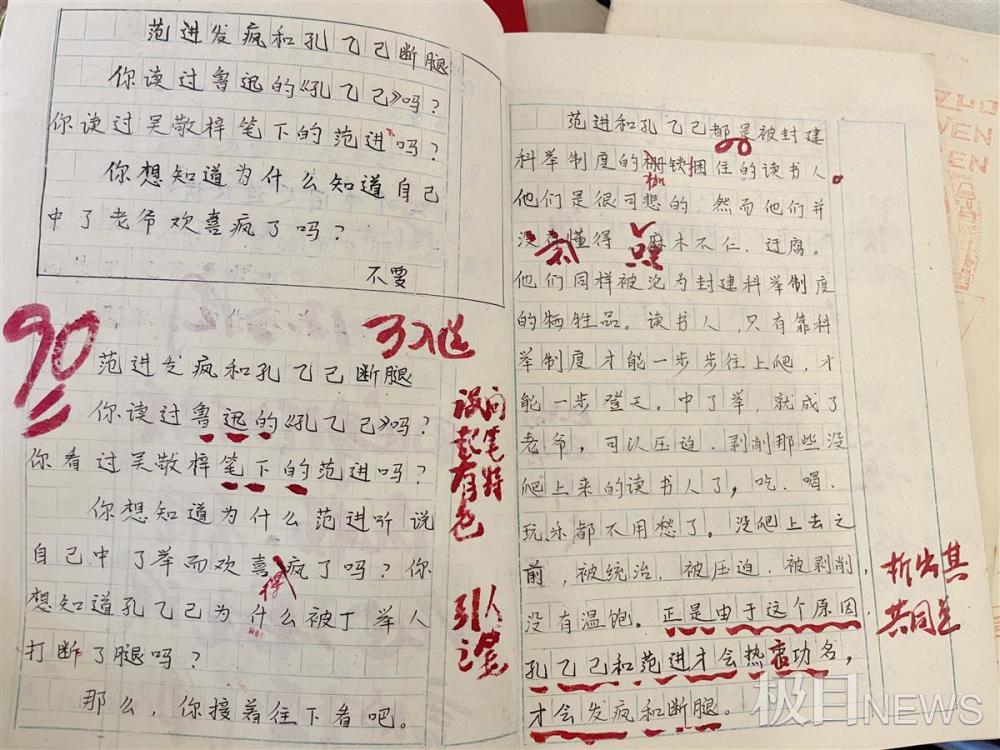 范进发疯和孔乙己断腿
你读过鲁迅的《孔乙己》吗?
你读过吴敬梓笔下的范进吗?
你想知道为什么知道自己
中了老爷欢喜疯了吗?
不要
90
可入选
范进发疯和孔乙己断腿
你读过鲁迅的《孔乙己》吗?
你看过吴敬梓笔下的范进吗?
你想知道为什么范进听说
自己中了举而欢喜得疯了吗?你
想知道孔乙己为什么被丁举人
打断了腿吗?
那么,你接着往下看吧。
设问
起笔
有特
色
引人
范进和孔乙己都是被封建
科举制度的枷铁捆住的读书人。
他们是很可悲的,然而他们并
没有懂得 麻木不仁、迂腐。
他们同样被沦为封建科举制度
的牺牲品。读书人,只有靠科
举制度才能一步步往上爬,才
能一步登天。中了举,就成了
老爷,可以压迫、剥削那些没
爬上来的读书人了,吃、喝、
玩乐都不用愁了。没爬上去之
前,被统治,被压迫,被剥削,
没有温饱。正是由于这个原因,
孔乙己和范进才会热衷功名,
才会发疯和断腿。
析出其
共同点
极目NEWS
VEN
EN